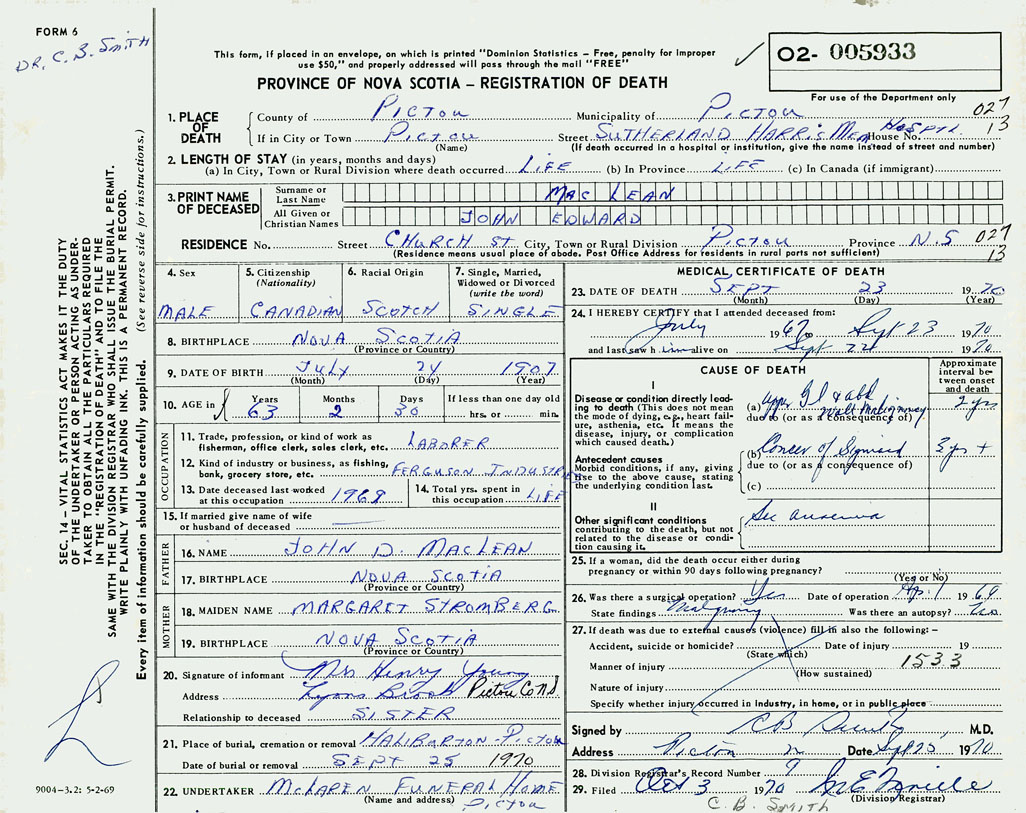 FORM 6
DR. C. B. SMITH
This form, if placed in an envelope, on which is printed "Dominion Statistics – Free, penalty for improper
use $50," and properly addressed will pass through the mail "FREE"
O2- 005933
PROVINCE OF NOVA SCOTIA – REGISTRATION OF DEATH
For use of the Department only
1. PLACE OF DEATH
County of PICTOU Municipality of PICTOU 027
If in City or Town PICTOU Street SUTHERLAND HARRIS MEM HOSPTL House No. 13
(Name) (If death occurred in a hospital or institution, give the name instead of street and number)
2. LENGTH OF STAY (in years, months and days)
(a) In City, Town or Rural Division where death occurred LIFE (b) In Province LIFE (c) In Canada (if immigrant)
3. PRINT NAME OF DECEASED
Surname or Last Name MAC LEAN
All Given or Christian Names JOHN EDWARD
RESIDENCE No. Street CHURCH ST City, Town or Rural Division PICTOU Province N.S 027
(Residence means usual place of abode. Post Office Address for residents in rural parts not sufficient) 13
4. Sex MALE
5. Citizenship (Nationality) CANADIAN
6. Racial Origin SCOTCH
7. Single, Married, Widowed or Divorced (write the word) SINGLE
8. BIRTHPLACE NOVA SCOTIA
(Province or Country)
9. DATE OF BIRTH JULY 24 1907
(Month) (Day) (Year)
10. AGE in Years 63 Months 2 Days 30 If less than one day old hrs. or min.
OCCUPATION
11. Trade, profession, or kind of work as
fisherman, office clerk, sales clerk, etc. LABORER
12. Kind of industry or business, as fishing,
bank, grocery store, etc. FERGUSON INDUSTRIES
13. Date deceased last worked
at this occupation 1969
14. Total yrs. spent in
this occupation LIFE
15. If married give name of wife
or husband of deceased
FATHER
16. NAME JOHN D. MACLEAN
17. BIRTHPLACE NOVA SCOTIA
(Province or Country)
MOTHER
18. MAIDEN NAME MARGARET STROMBERG
19. BIRTHPLACE NOVA SCOTIA
(Province or Country)
20. Signature of informant Mrs Henry Young
Address Lyons Brook Pictou Co NS
Relationship to deceased SISTER
21. Place of burial, cremation or removal HALIBURTON-PICTOU
Date of burial or removal SEPT 25 1970
22. UNDERTAKER McLAREN FUNERAL HOME
(Name and address) PICTOU
MEDICAL CERTIFICATE OF DEATH
23. DATE OF DEATH SEPT 23 1970
(Month) (Day) (Year)
24. I HEREBY CERTIFY that I attended deceased from:
July 1967 to Sept 23 1970
and last saw him alive on Sept 22 1970
CAUSE OF DEATH
Approximate interval between onset and death
I
Disease or condition directly leading to death (This does not mean the mode of dying, e.g., heart failure, asthenia, etc. It means the disease, injury, or complication which caused death.)
(a) upper GI & abd wall malignancy 2 yrs
due to (or as a consequence of)
Antecedent causes
Morbid conditions, if any, giving rise to the above cause, stating the underlying condition last.
(b) Cancer of Sigmoid 3 yrs +
due to (or as a consequence of)
(c)
II
Other significant conditions
contributing to the death, but not related to the disease or condition causing it.
25. If a woman, did the death occur either during
pregnancy or within 90 days following pregnancy?
(Yes or No)
26. Was there a surgical operation? Yes Date of operation Apr. 1 1969
State findings Was there an autopsy? no
27. If death was due to external causes (violence) fill in also the following: –
Accident, suicide or homicide? Date of injury 19
(State which)
Manner of injury 1533
(How sustained)
Nature of injury
Specify whether injury occurred in industry, in home, or in public place
Signed by CB Smith, M.D.
Address Pictou Date Sept 25 1970
28. Division Registrar's Record Number 9
29. Filed Oct 3 1970
(Division Registrar)
C. B. SMITH
SEC. 14 – VITAL STATISTICS ACT MAKES IT THE DUTY
OF THE UNDERTAKER OR PERSON ACTING AS UNDER-
TAKER TO OBTAIN ALL THE PARTICULARS REQUIRED
IN THE "REGISTRATION OF DEATH" AND TO FILE THE
SAME WITH THE DIVISION REGISTRAR WHO SHALL ISSUE THE BURIAL PERMIT.
WRITE PLAINLY WITH UNFADING INK. THIS IS A PERMANENT RECORD.
Every item of information should be carefully supplied. (See reverse side for instructions.)
9004-3.2: 5-2-69